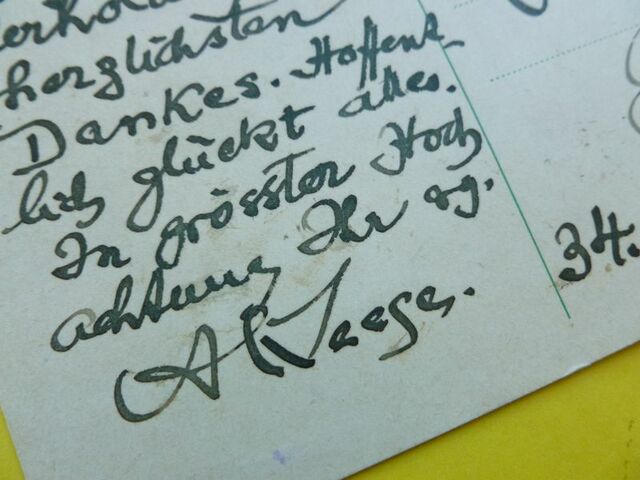 herzlichsten
Dankes. Hoffent-
lich glückt alles.
In grösster Hoch
achtung Ihr erg.
34.